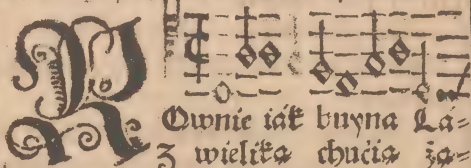 ROwnie iák buyna Lá⸗
Z wieliką chucią żą⸗